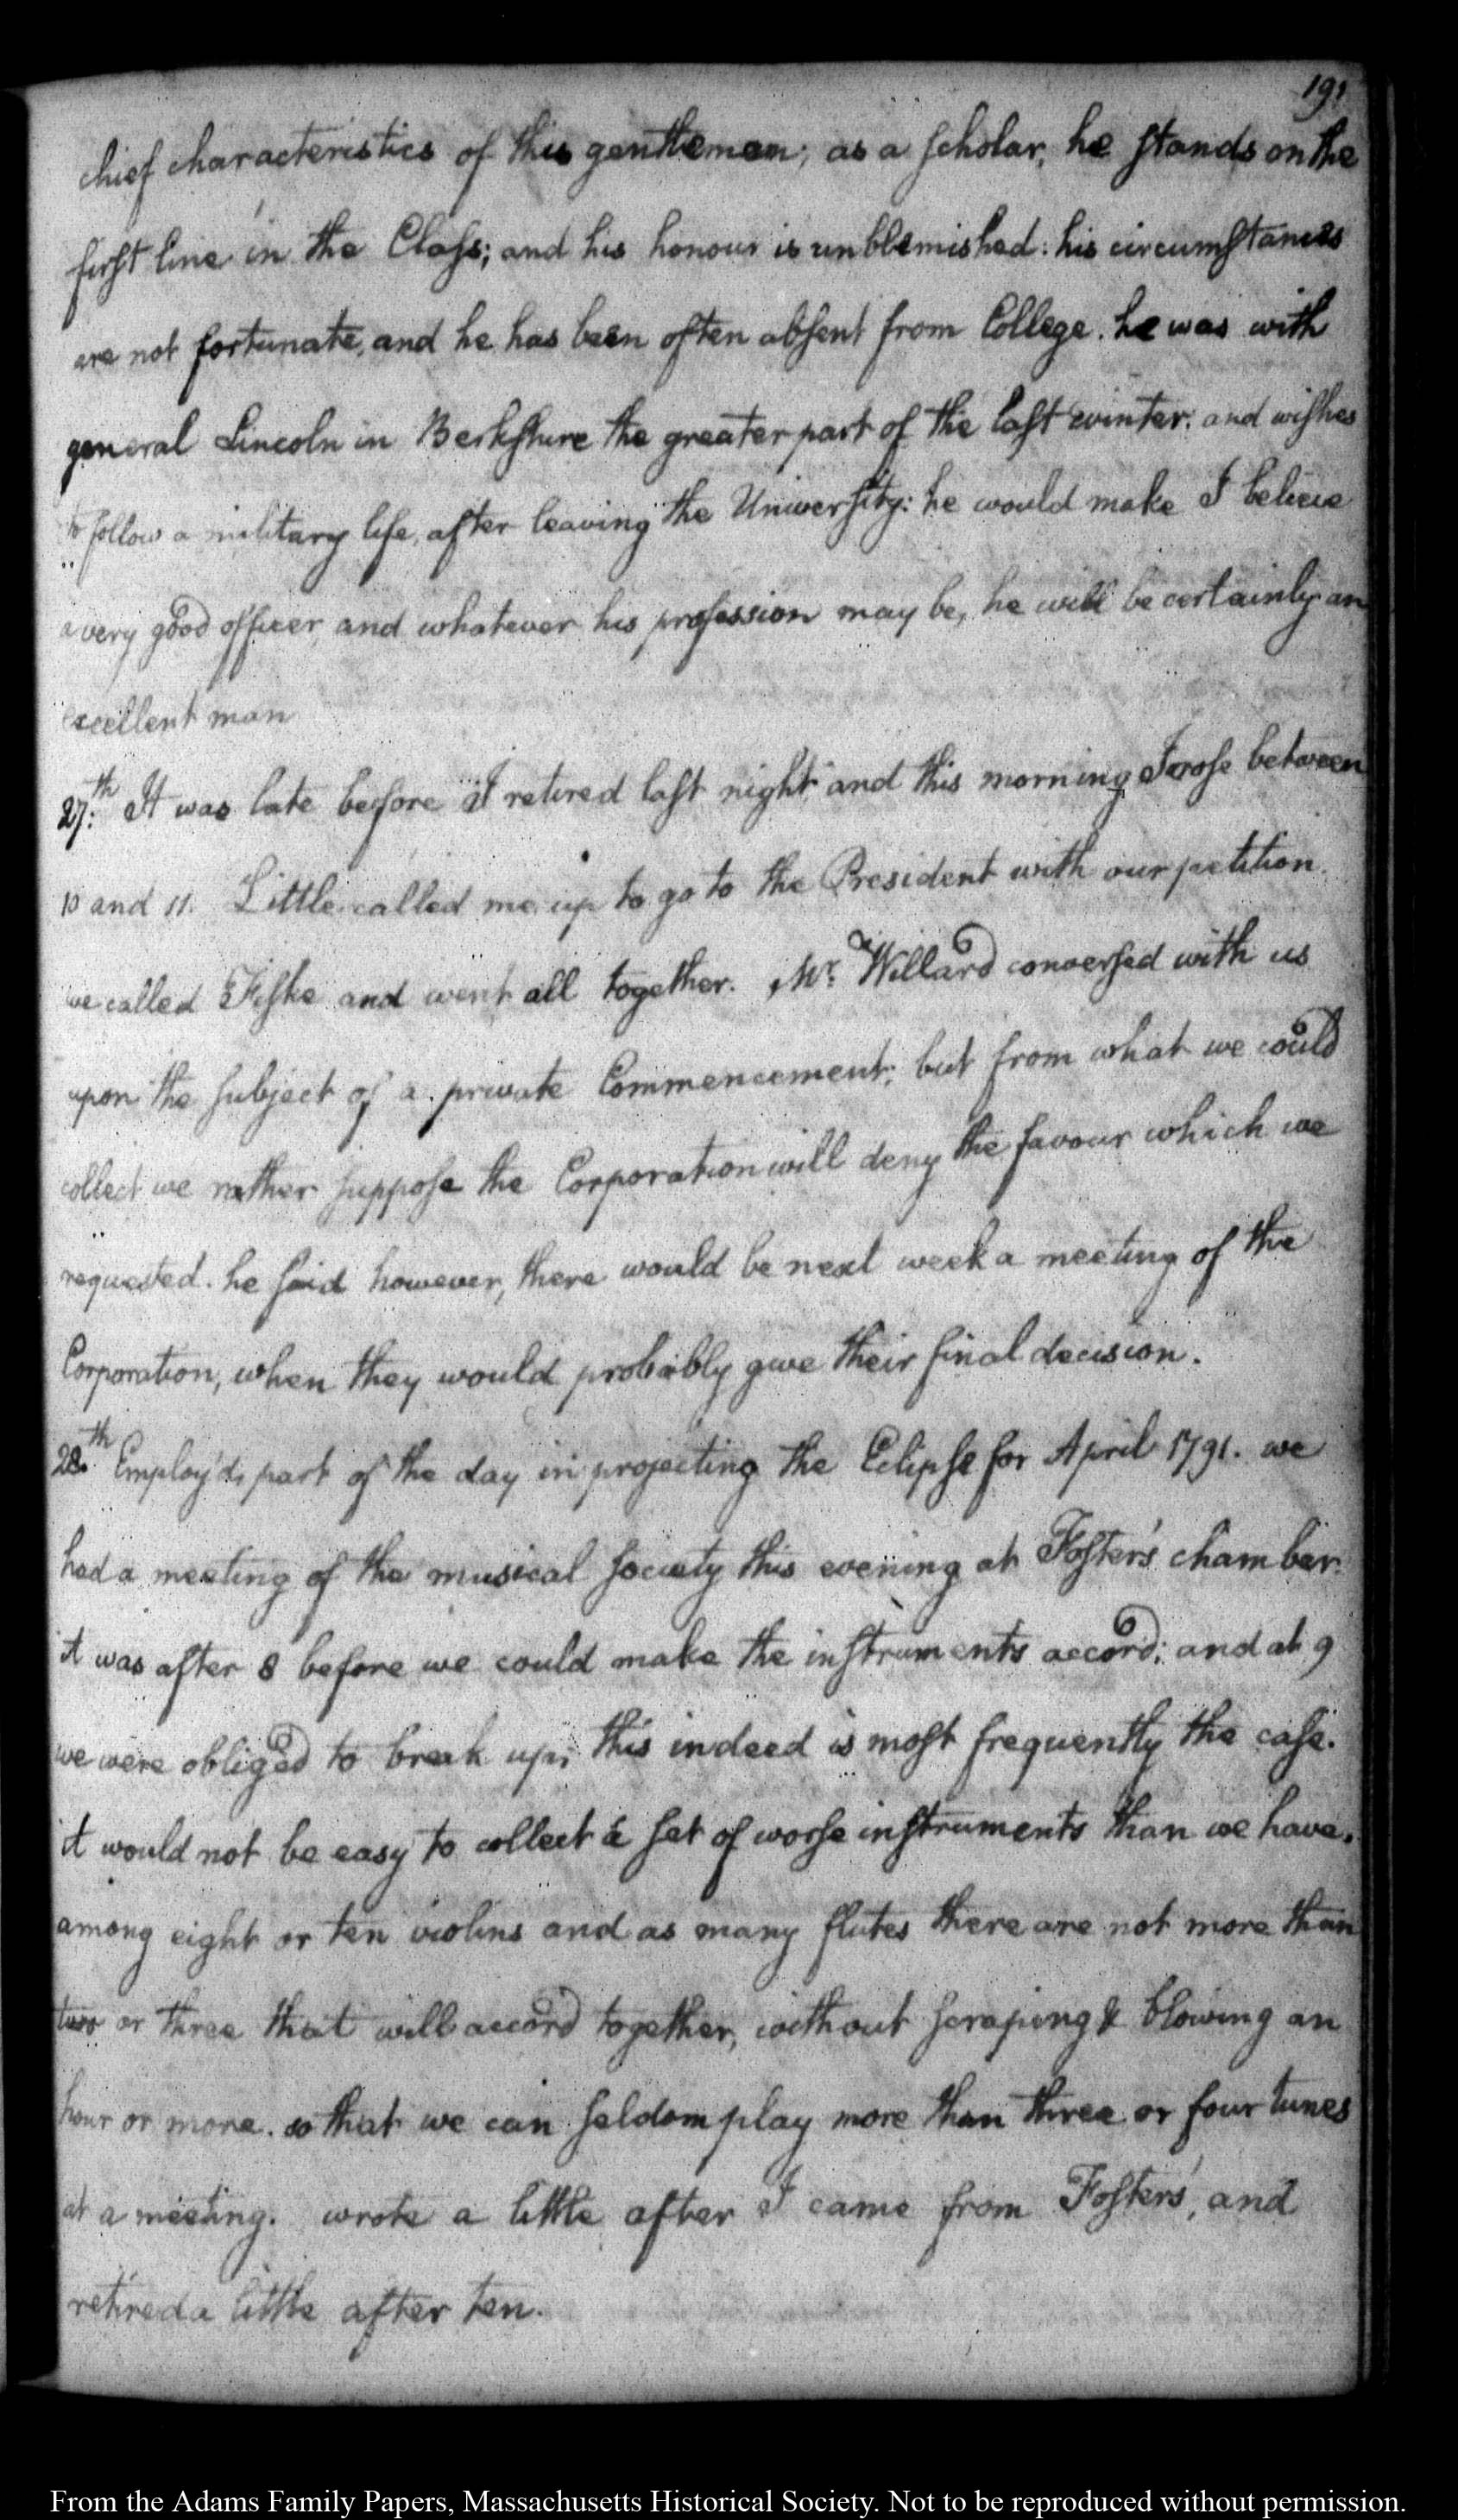 191
chief characteristics of this gentleman; as a scholar, he stands on the
first line in the Class; and his honour is unblemished: his circumstances
are not fortunate, and he has been often absent from College. he was with
general Lincoln in Berkshire the greater part of the last winter: and wishes
to follow a military life, after leaving the University: he would make I believe
a very good officer, and whatever his profession may be, he will be certainly an
excellent man
27.th It was late before I retired last night and this morning I rose between
10 and 11. Little called me up to go to the President with our petition.
we called Fiske and went all together. Mr. Willard conversed with us
upon the subject of a private Commencement; but from what we could
collect we rather suppose the Corporation will deny the favour which we
requested. he said however, there would be next week a meeting of the
Corporation, when they would probably give their final decision.
28.th Employ'd, part of the day in projecting the Eclipse for April 1791. we
had a meeting of the musical society this evening at Foster's chamber.
it was after 8 before we could make the instruments accord: and at 9
we were obliged to break up, this indeed is most frequently the case.
it would not be easy to collect a set of worse instruments than we have.
among eight or ten violins and as many flutes there are not more than
two or three that will accord together, without scraping & blowing an
hour or more. so that we can seldom play more than three or four tunes
at a meeting. wrote a little after I came from Foster's, and
retired a little after ten.
From the Adams Family Papers, Massachusetts Historical Society. Not to be reproduced without permission.